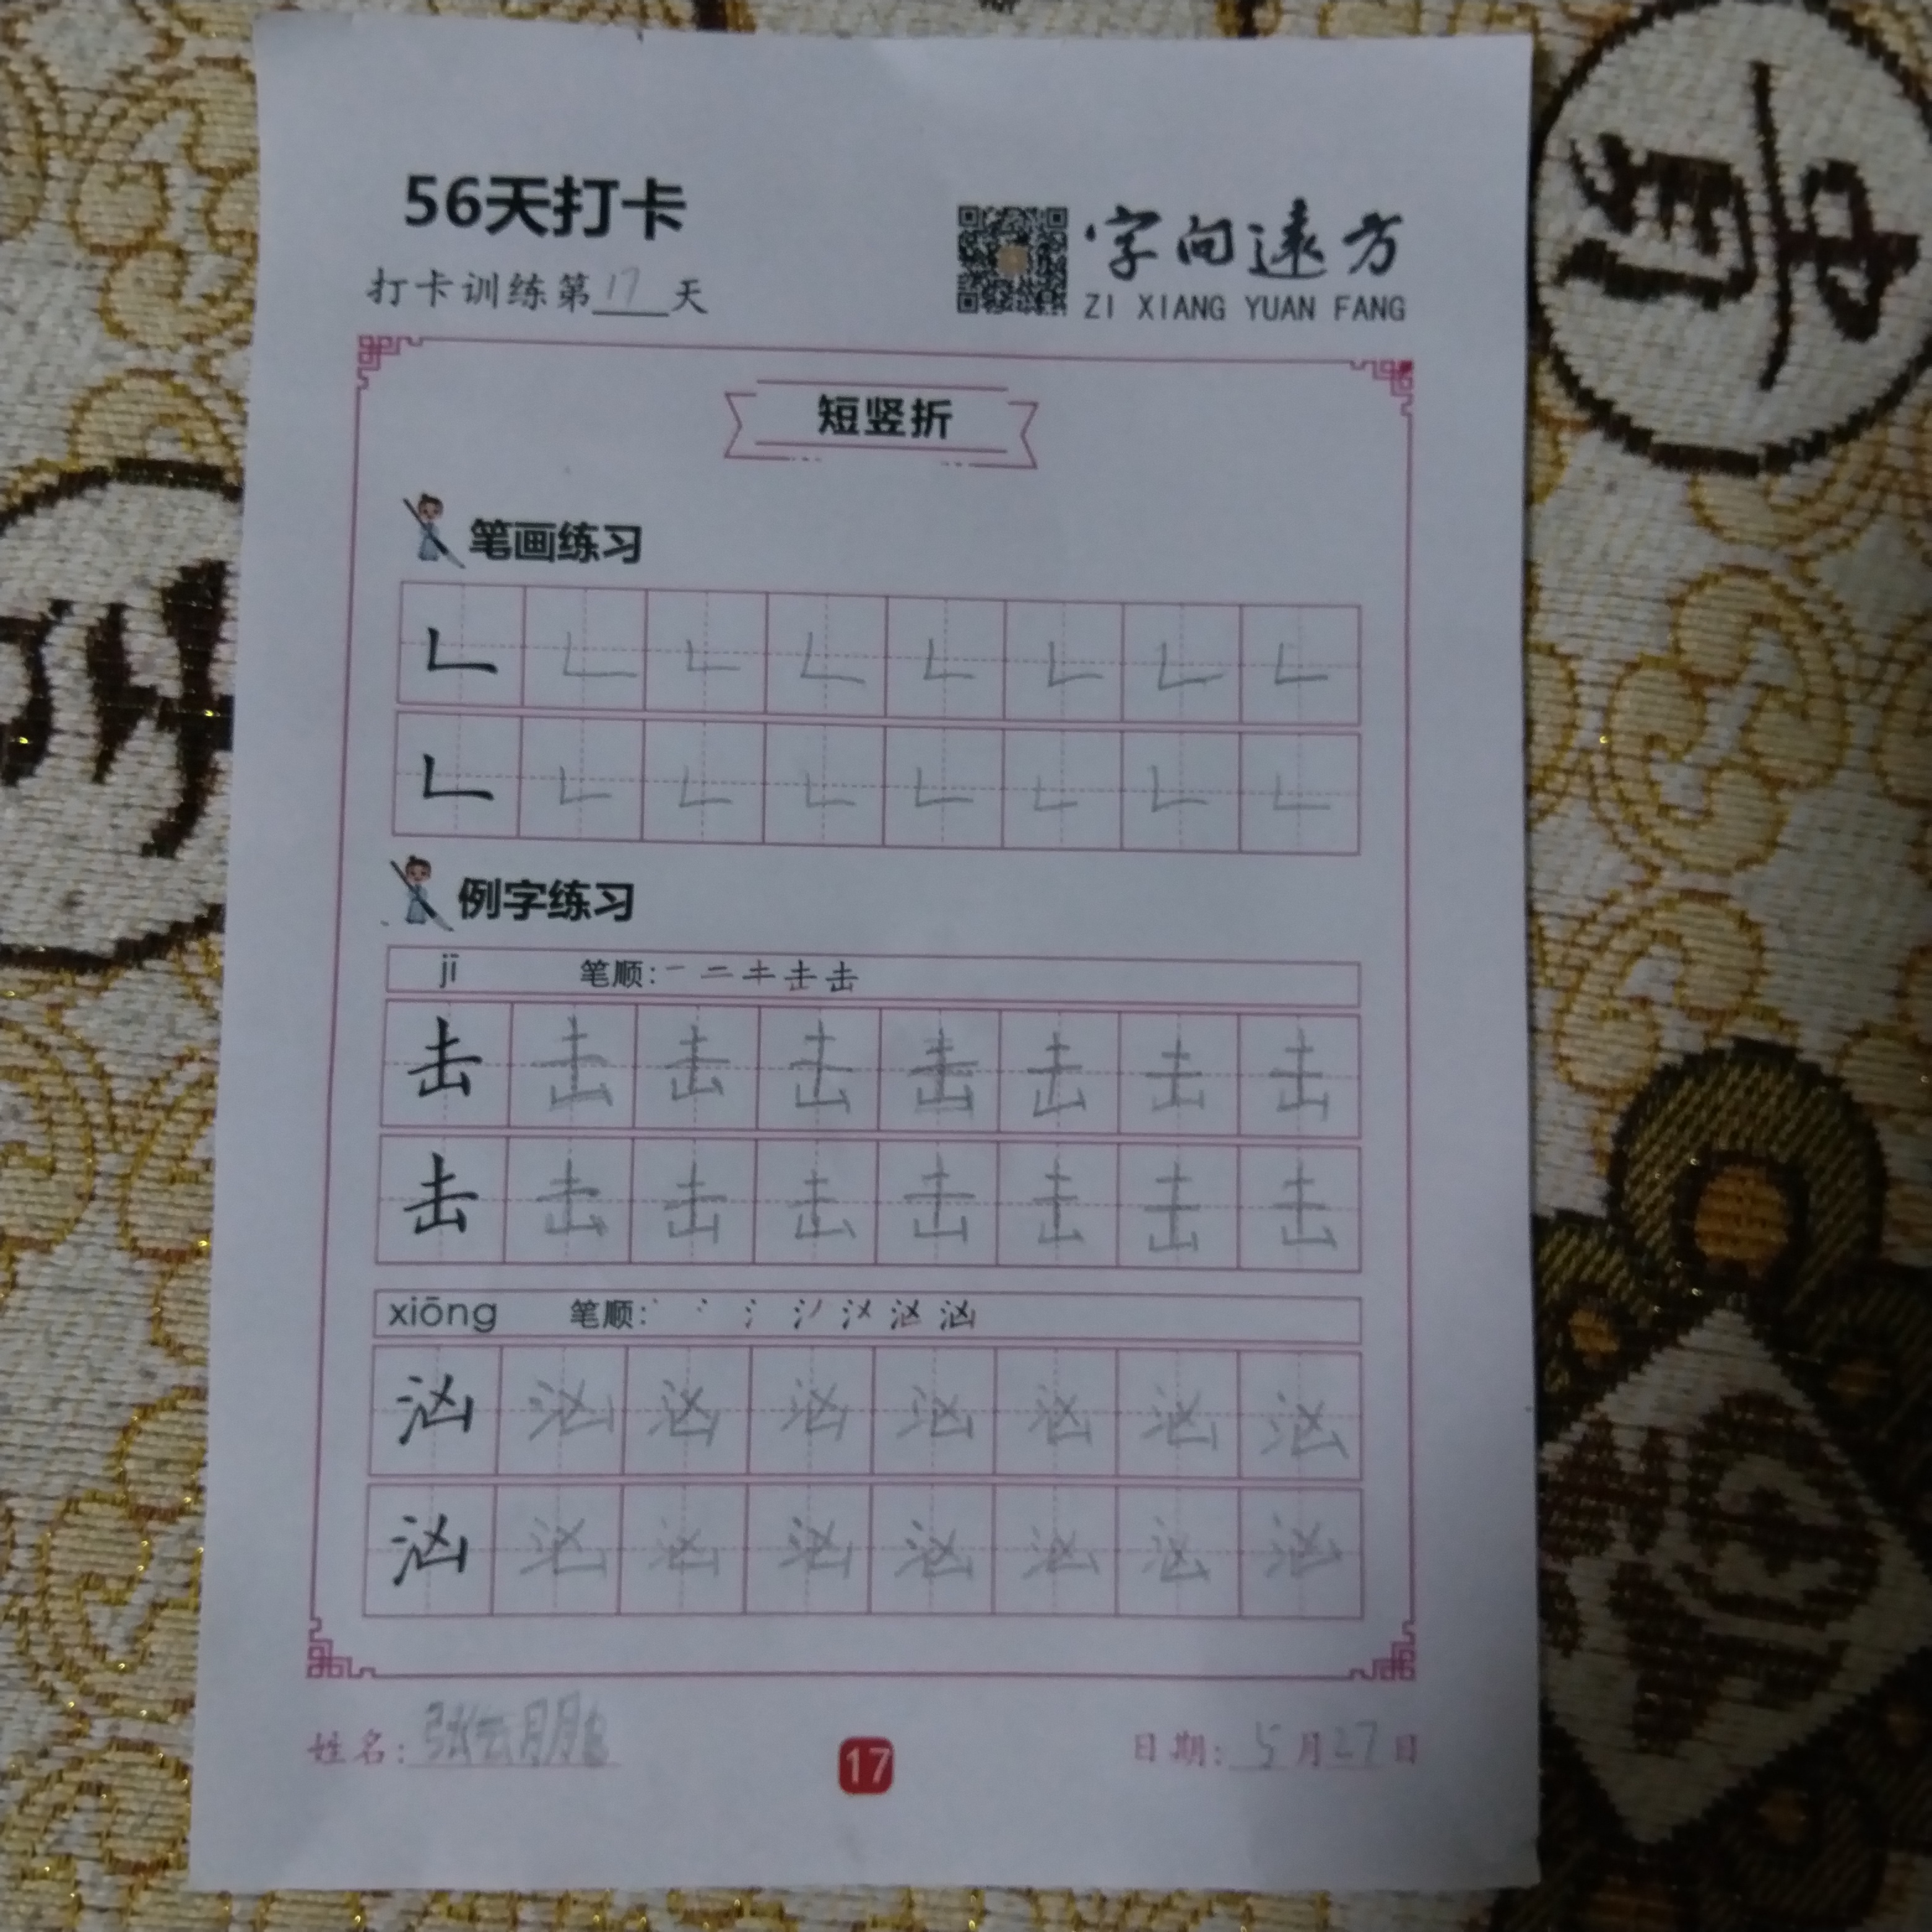 56天打卡
打卡训练第17天
字向遠方
ZI XIANG YUAN FANG
短竖折
笔画练习
𠃊 𠃊 𠃊 𠃊 𠃊 𠃊 𠃊 𠃊
𠃊 𠃊 𠃊 𠃊 𠃊 𠃊 𠃊 𠃊
例字练习
jī 笔顺:
击 击 击 击 击 击 击 击
击 击 击 击 击 击 击 击
xiōng 笔顺:
汹 汹 汹 汹 汹 汹 汹 汹
汹 汹 汹 汹 汹 汹 汹 汹
姓名: 张云鹏
17
日期: 5月27日